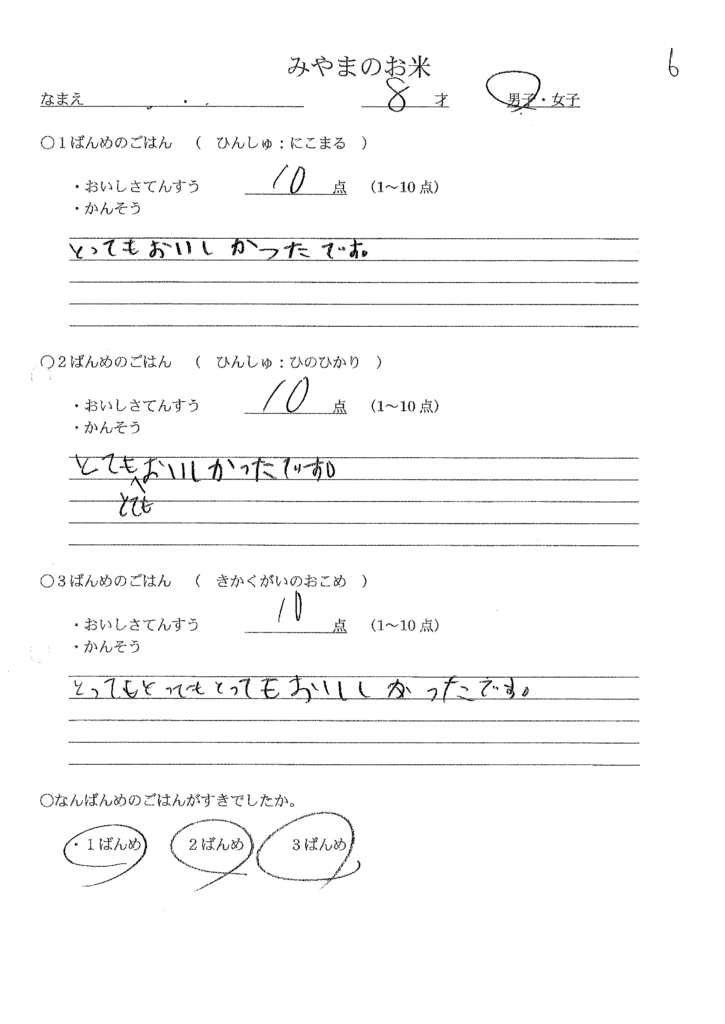 6
みやまのお米
なまえ 8 才 男子・女子
○1ばんめのごはん ( ひんしゅ:にこまる )
・おいしさてんすう 10 点 (1~10点)
・かんそう
とってもおいしかったです。
○2ばんめのごはん ( ひんしゅ:ひのひかり )
・おいしさてんすう 10 点 (1~10点)
・かんそう
とてもおいしかったでーす。
とても
○3ばんめのごはん ( きかくがいのおこめ )
・おいしさてんすう 10 点 (1~10点)
・かんそう
とってもとってもとってもおいししかったです。
○なんばんめのごはんがすきでしたか。
・1ばんめ 2ばんめ 3ばんめ